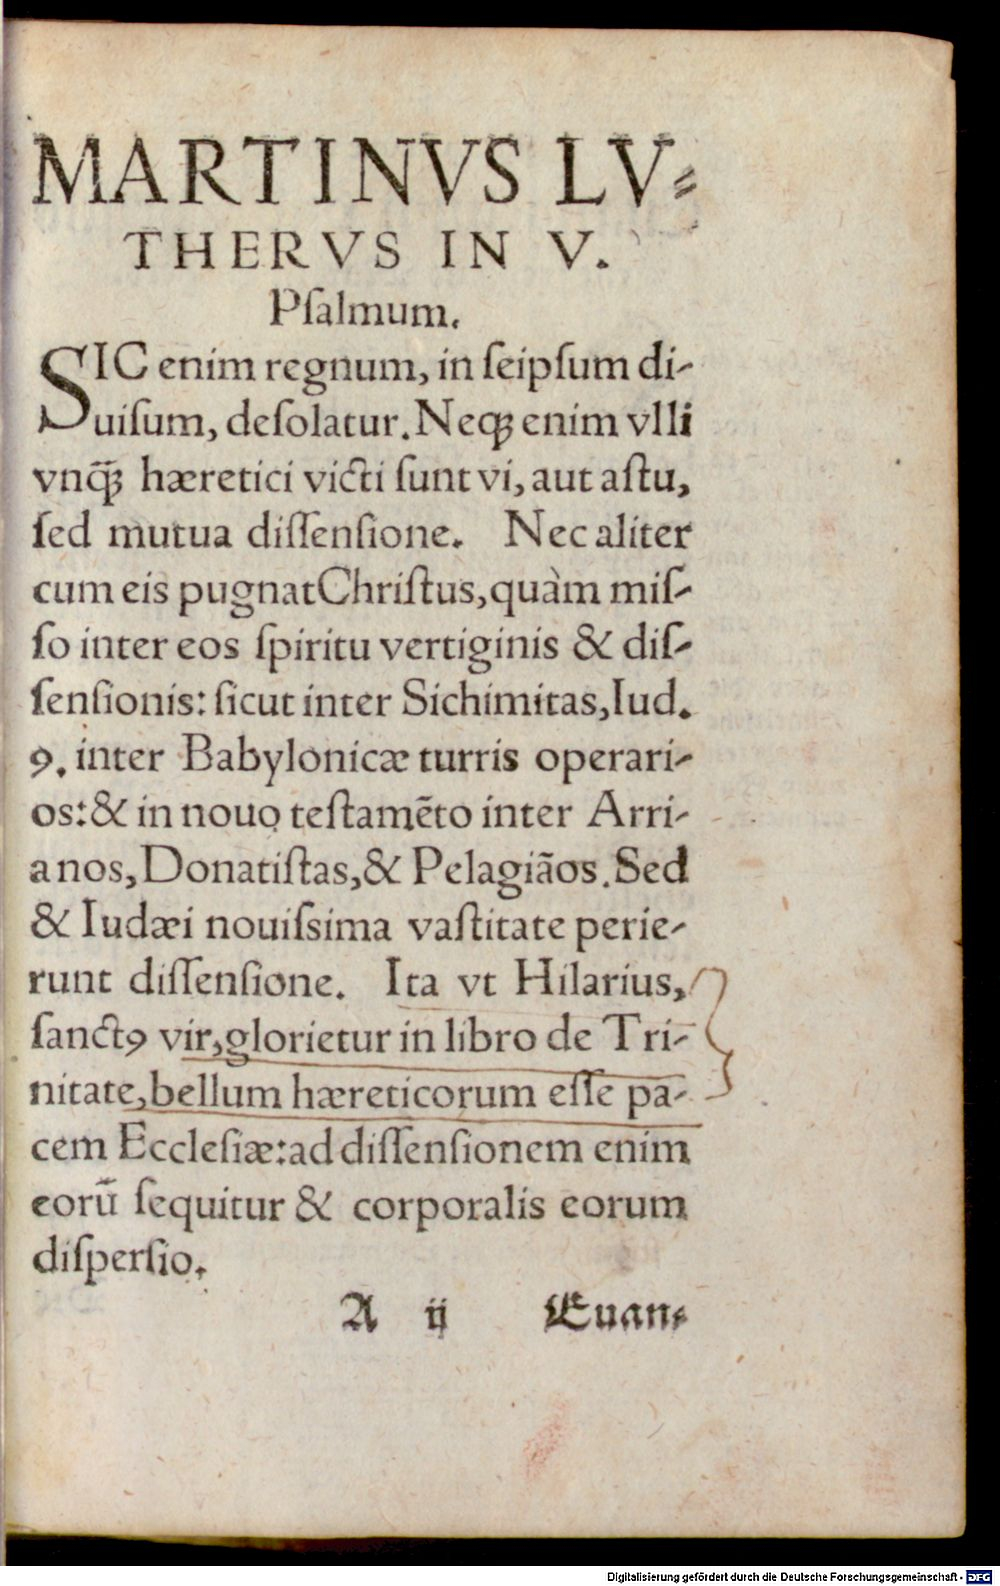 MARTINVS LV⸗
THERVS IN V.
Pſalmum.
SIC enim regnum, in ſeipſum di-
uiſum, deſolatur. Neqꝫ enim vlli
vnq̃ꝫ hæretici victi ſunt vi, aut aſtu,
ſed mutua diſſenſione. Nec aliter
cum eis pugnat Chriſtus, quàm miſ-
ſo inter eos ſpiritu vertiginis & diſ-
ſenſionis: ſicut inter Sichimitas, Iud.
9. inter Babylonicæ turris operari-
os: & in nouo teſtamẽto inter Arri-
anos, Donatiſtas, & Pelagiãos. Sed
& Iudæi nouiſsima vaſtitate perie-
runt diſſenſione. Ita vt Hilarius,
ſanctꝰ vir, glorietur in libro de Tri-
nitate, bellum hæreticorum eſſe pa-
cem Eccleſiæ: ad diſſenſionem enim
eorũ ſequitur & corporalis eorum
diſperſio.
A ij Euan⸗
Digitalisierung gefördert durch die Deutsche Forschungsgemeinschaft - DFG